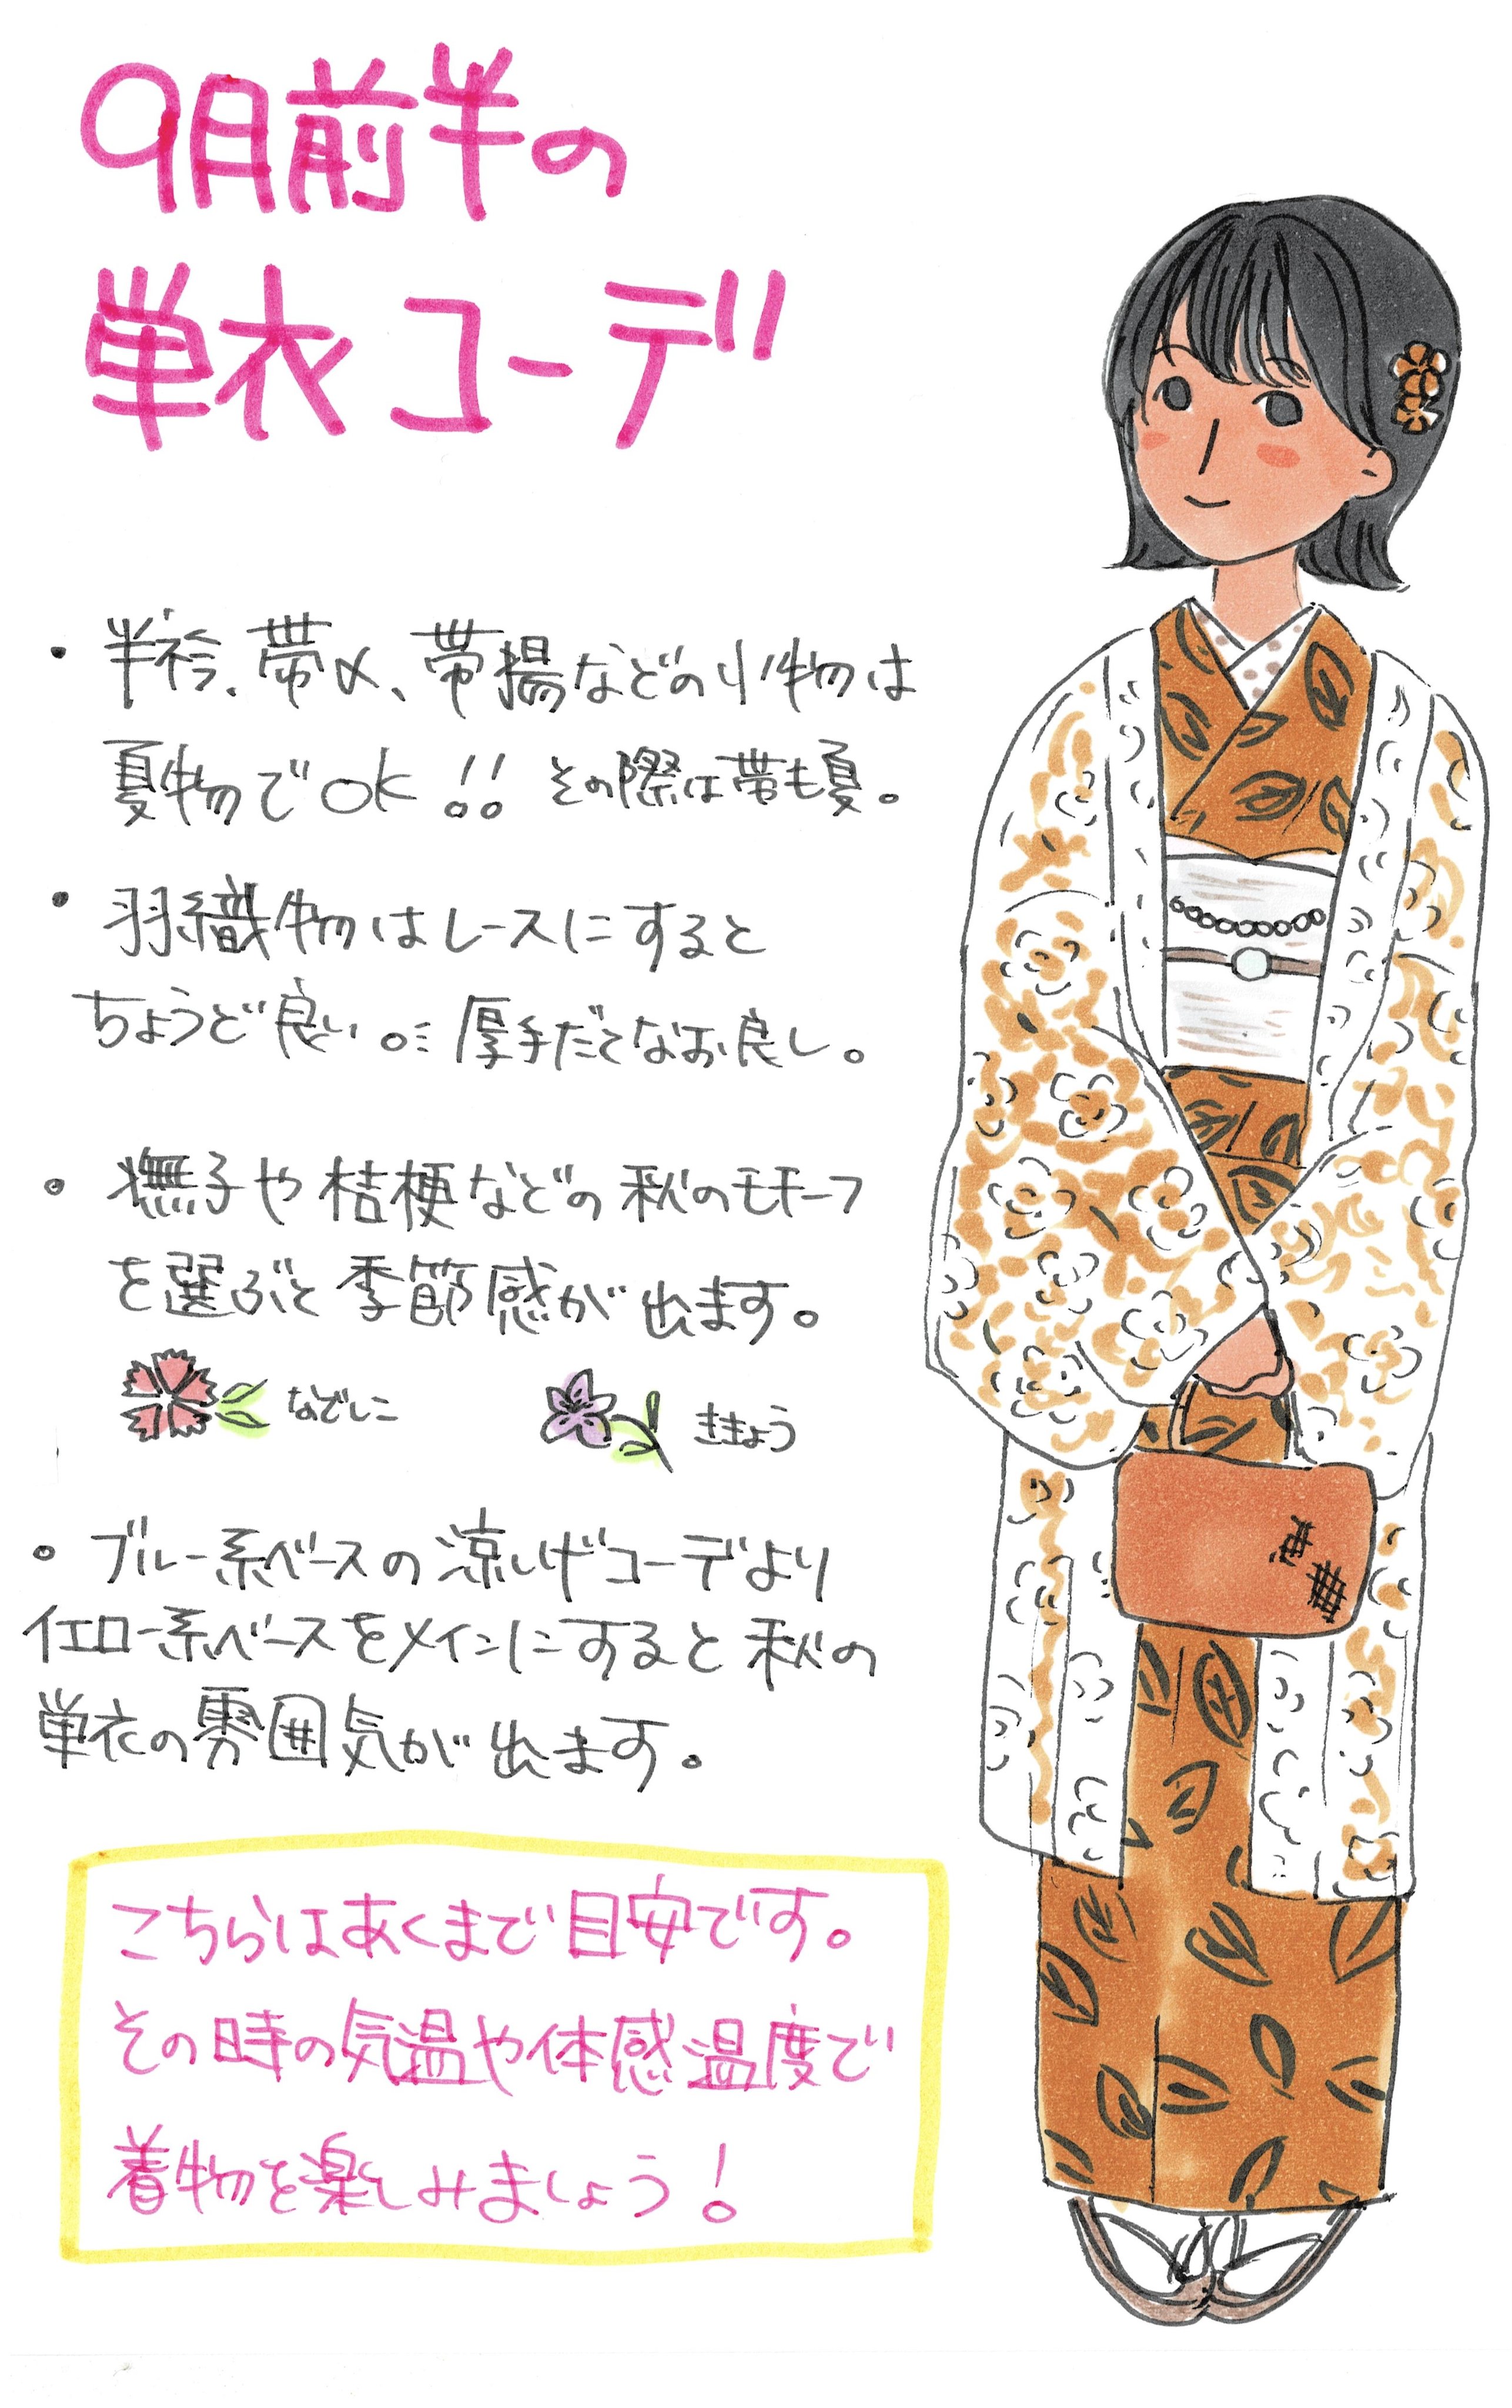 9月前半の
単衣コーデ
・半衿、帯〆、帯揚などの小物は
夏物でOK!! その際は帯も夏。
・羽織物はレースにすると
ちょうど良い。厚手だとなお良し。
・撫子や桔梗などの秋のモチーフ
を選ぶと季節感が出ます。
なでしこ ききょう
・ブルー系ベースの涼しげコーデより
イエロー系ベースをメインにすると秋の
単衣の雰囲気が出ます。
こちらはあくまで目安です。
その時の気温や体感温度で
着物を楽しみましょう!